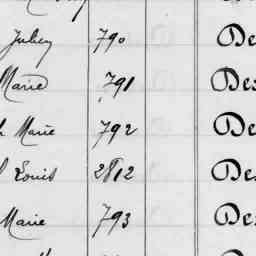 Juley 790 De
Marie 791 Des
Marie 792 De
Louis 2812 Des
Marie 793 De